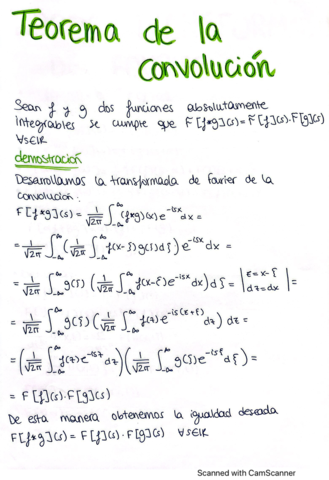 Teorema de la
convolución
Sean f y g dos funciones absolutamente
integrables se cumple que F[f*g](s)=F[f](s).F[g](s)
∀s∈ℝ
demostración
Desarrollamos la transformada de Fourier de la
convolución:
F[f*g](s) = 1/√2π ∫_{-∞}^{∞} (f*g)(x) e^{-isx} dx =
= 1/√2π ∫_{-∞}^{∞} (1/√2π ∫_{-∞}^{∞} f(x-ξ) g(ξ) dξ) e^{-isx} dx =
= 1/√2π ∫_{-∞}^{∞} g(ξ) (1/√2π ∫_{-∞}^{∞} f(x-ξ) e^{-isx} dx) dξ = | z = x-ξ
dz = dx | =
= 1/√2π ∫_{-∞}^{∞} g(ξ) (1/√2π ∫_{-∞}^{∞} f(z) e^{-is(z+ξ)} dz) dz =
= (1/√2π ∫_{-∞}^{∞} f(z) e^{-isz} dz) (1/√2π ∫_{-∞}^{∞} g(ξ) e^{-isξ} dξ) =
= F[f](s). F[g](s)
De esta manera obtenemos la igualdad deseada
F[f*g](s) = F[f](s). F[g](s) ∀s∈ℝ
Scanned with CamScanner